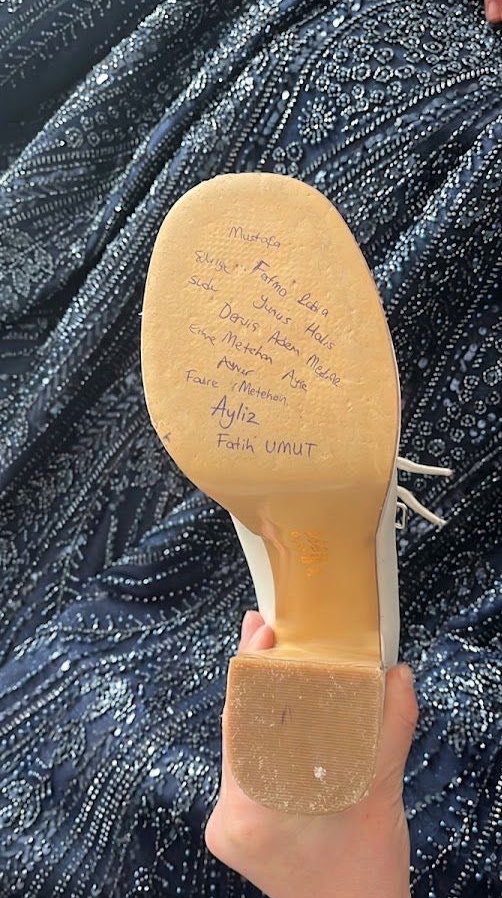 Mustafa
Fatma Rabia
Side Yunus Halis
Derviş Adem Medine
Emre Metehan Ayşe
Aynur
Metehan
Ayliz
Fatih UMUT